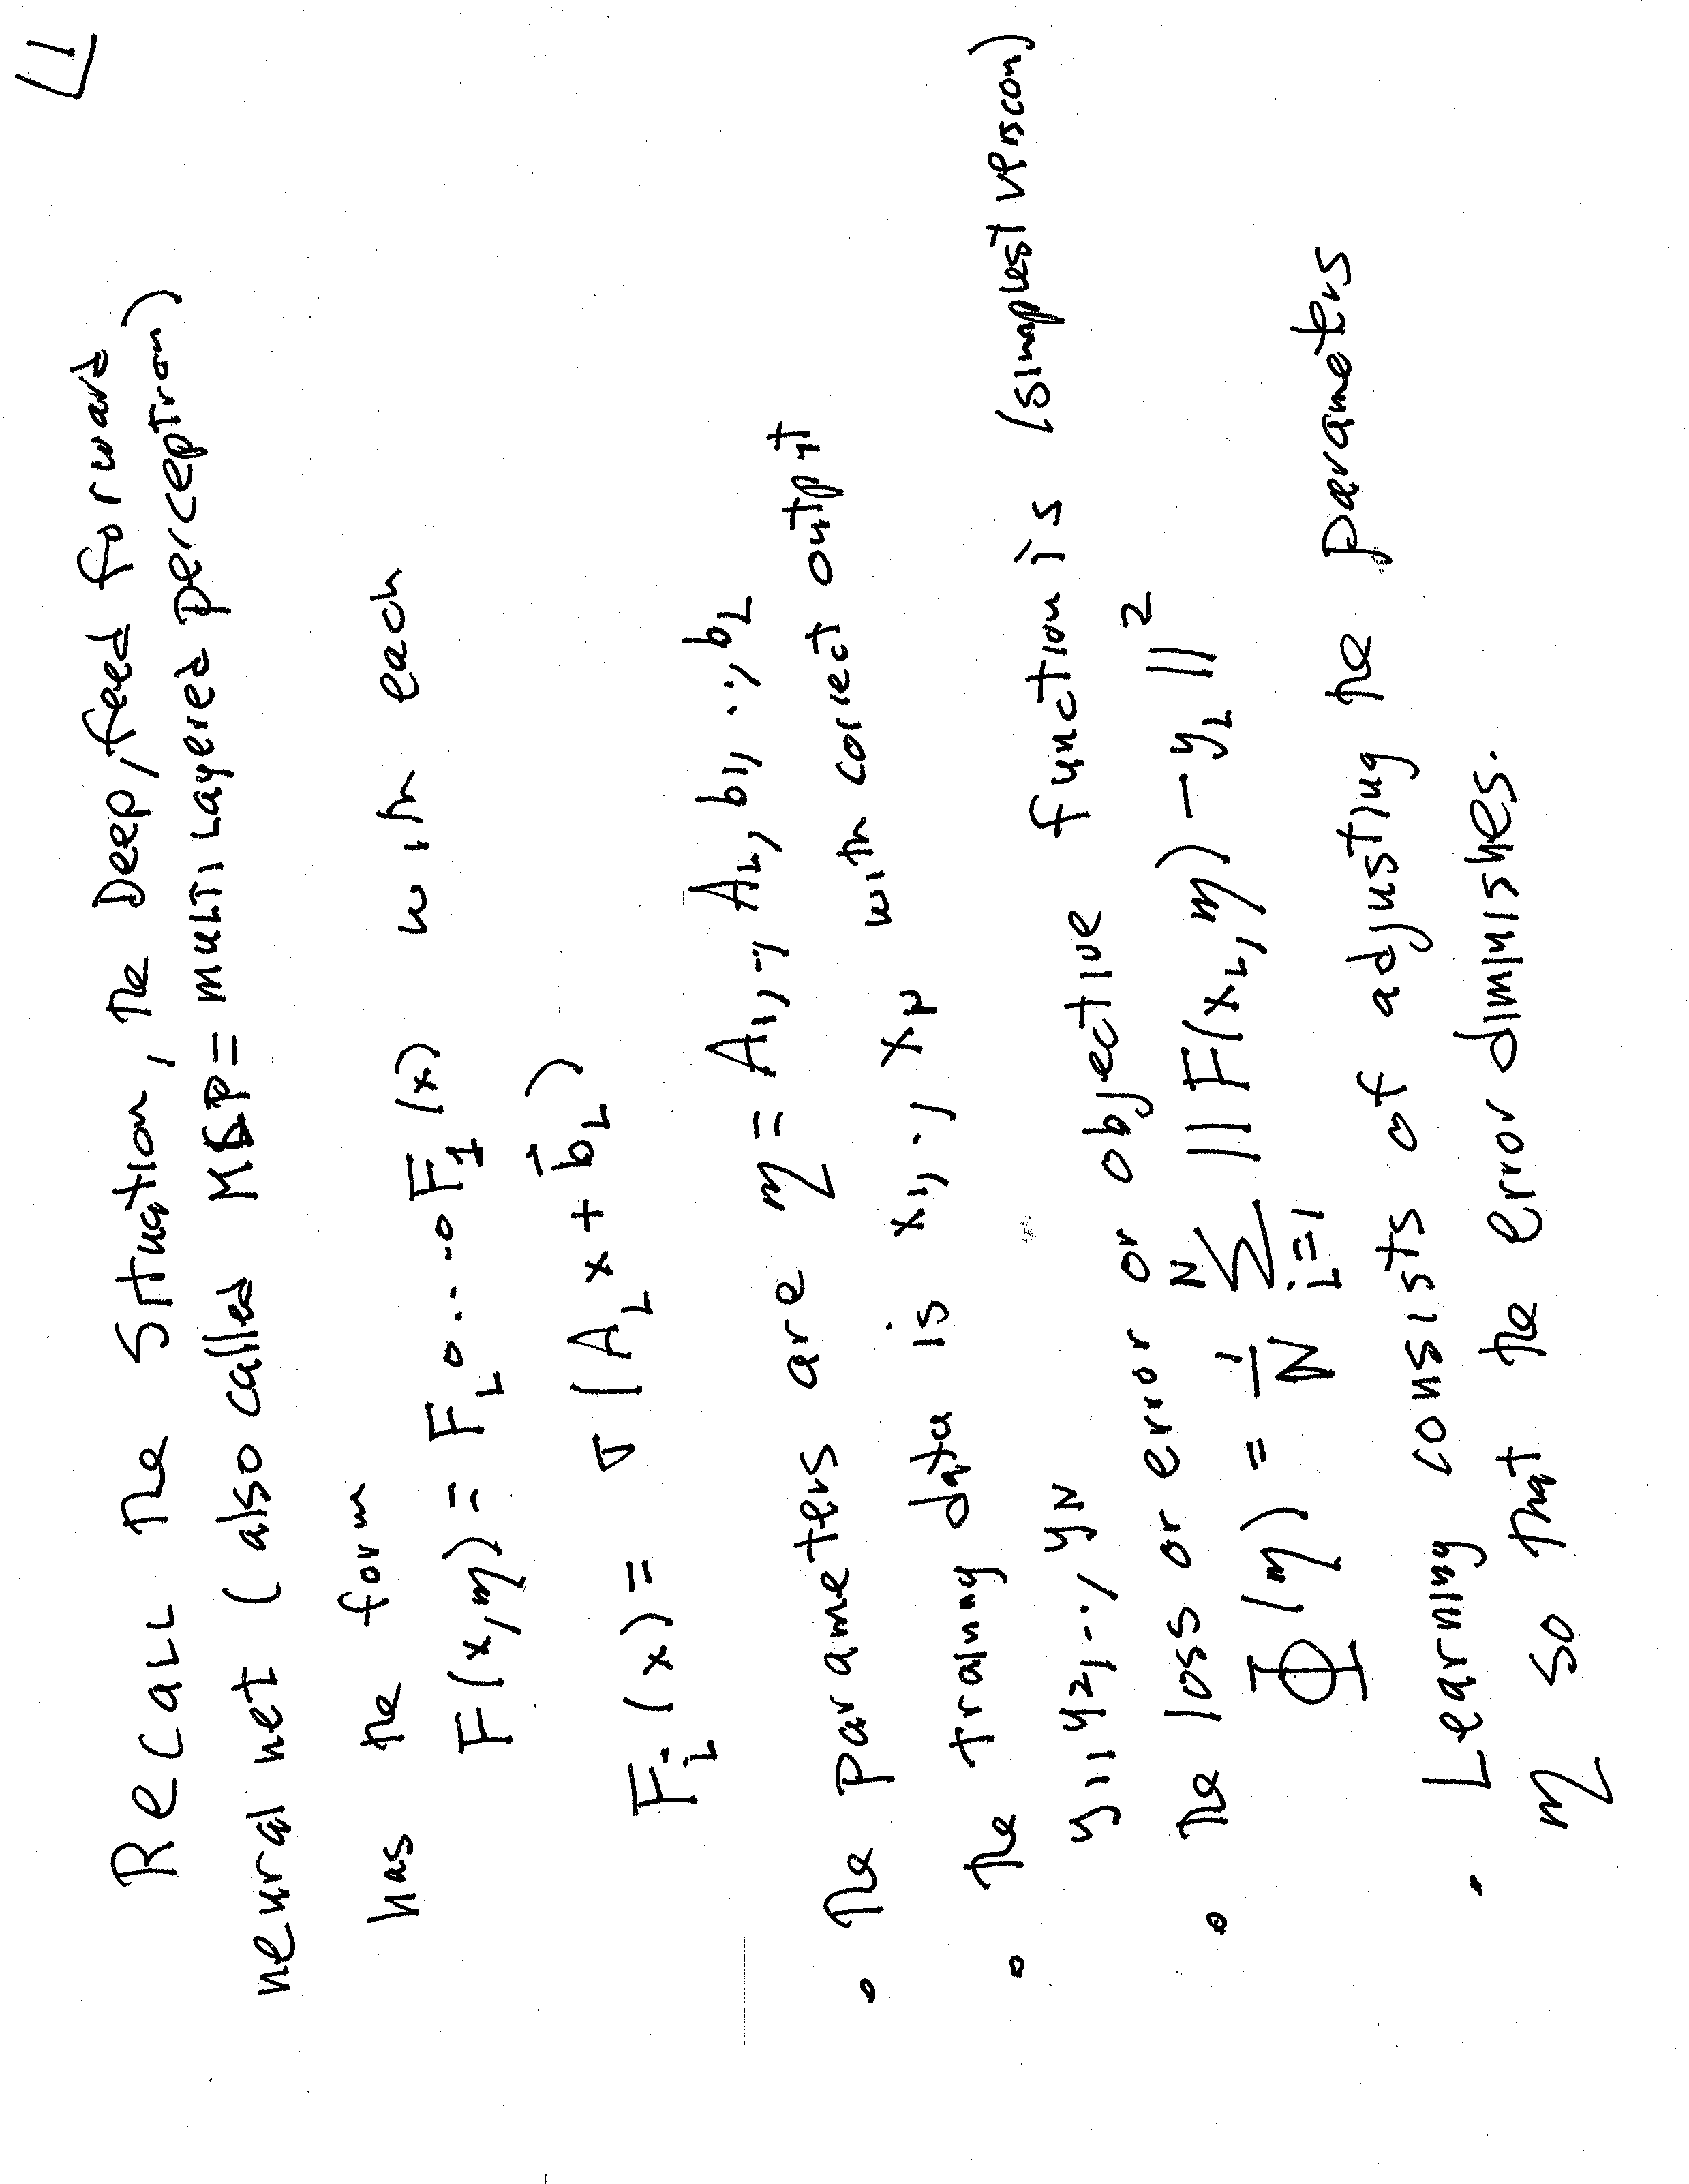 1
Recall the situation, the Deep, feed forward
neural net (also called MLP = multilayered perceptron)
has the form
F(x,η) = F_L o ... o F_1 (x) with each
F_i (x) = σ (A_i x + b⃗_i)
• the parameters are η = A_1, .., A_L, b_1, .., b_L
• the training data is x_1, .., x_N with correct outpt
y_1, y_2, .., y_N
• the loss or error or objective function is (simplest version)
Φ(η) = 1/N Σ_{i=1}^{N} || F(x_i, η) - y_i ||^2
• Learning consists of adjusting the parameters
η so that the error diminishes.